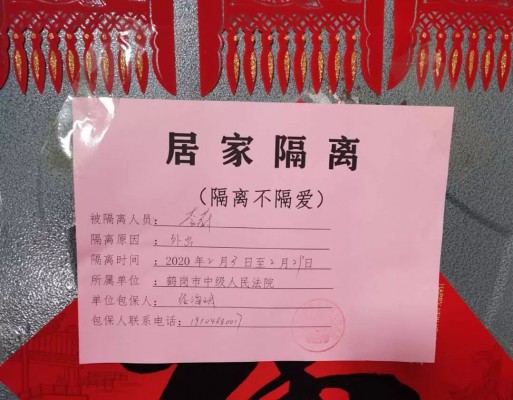 居家隔离
(隔离不隔爱)
被隔离人员：
隔离原因：外出
隔离时间：2020年2月3日至2月29日
所属单位：鹤岗市中级人民法院
单位包保人：
包保人联系电话：